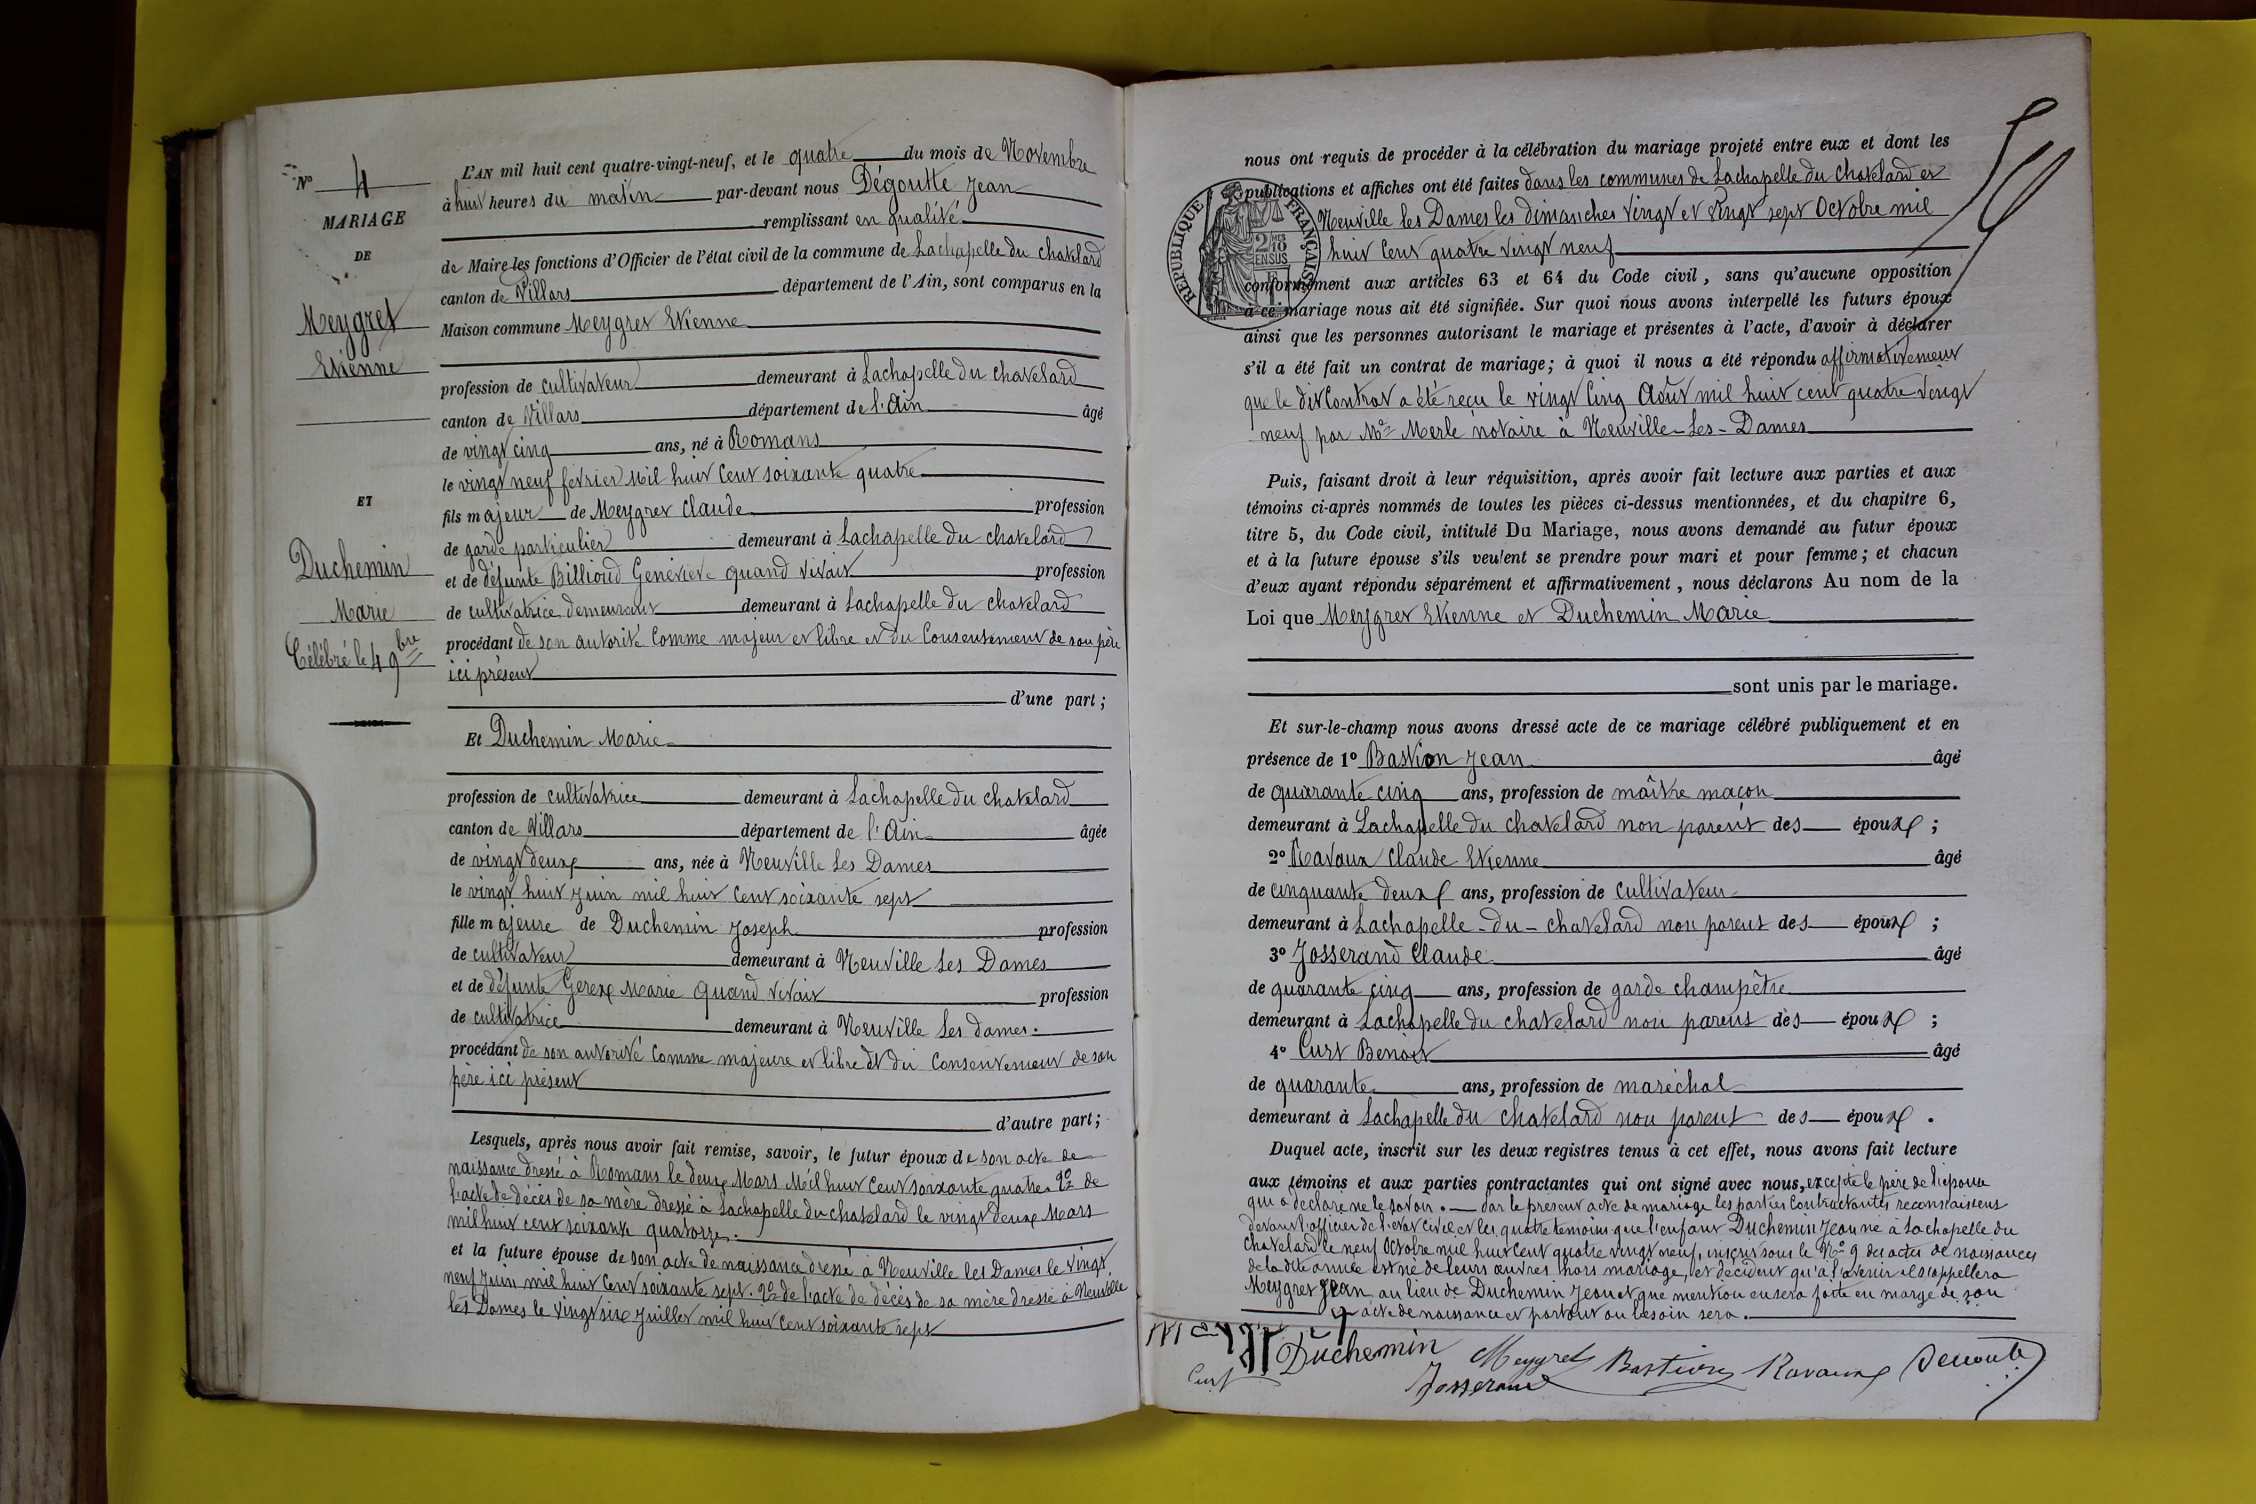 N° 4
MARIAGE
DE
Meygret
Etienne
ET
Duchemin
Marie
Célébré le 4 9bre
L'AN mil huit cent quatre-vingt-neuf, et le quatre du mois de Novembre
à huit heures du matin par-devant nous Dégoutte Jean
remplissant en qualité
de Maire les fonctions d'Officier de l'état civil de la commune de Lachapelle du chatelard
canton de Villars département de l'Ain, sont comparus en la
Maison commune Meygret Etienne
profession de cultivateur demeurant à Lachapelle du chatelard
canton de Villars département de l'Ain âgé
de vingt cinq ans, né à Romans
le vingt neuf février mil huit cent soixante quatre
fils majeur de Meygret Claude profession
de garde particulier demeurant à Lachapelle du chatelard
et de défunte Billioud Geneviève quand vivait profession
de cultivatrice demeurant demeurant à Lachapelle du chatelard
procédant de son autorité comme majeur et libre et du consentement de son père
ici présent
d'une part ;
Et Duchemin Marie
profession de cultivatrice demeurant à Lachapelle du chatelard
canton de Villars département de l'Ain âgée
de vingt deux ans, née à Neuville Les Dames
le vingt huit juin mil huit cent soixante sept
fille majeure de Duchemin Joseph profession
de cultivateur demeurant à Neuville Les Dames
et de défunte Gerex Marie quand vivait profession
de cultivatrice demeurant à Neuville Les dames.
procédant de son autorité comme majeure et libre et du consentement de son
père ici présent
d'autre part ;
Lesquels, après nous avoir fait remise, savoir, le futur époux de son acte de
naissance dressé à Romans le deux Mars Mil huit cent soixante quatre. 2° de
l'acte de décès de sa mère dressé à Lachapelle du chatelard le vingt deux Mars
mil huit cent soixante quatorze.
et la future épouse de son acte de naissance dressé à Neuville les Dames le vingt
neuf juin mil huit cent soixante sept. 2° de l'acte de décès de sa mère dressé à Neuville
les Dames le vingt six juillet mil huit cent soixante sept
nous ont requis de procéder à la célébration du mariage projeté entre eux et dont les
publications et affiches ont été faites dans les communes de Lachapelle du chatelard et
Neuville les Dames les dimanches vingt et vingt sept Octobre mil
huit cent quatre vingt neuf
RÉPUBLIQUE FRANÇAISE
2 MES 10
EN SUS
conformément aux articles 63 et 64 du Code civil, sans qu'aucune opposition
à ce mariage nous ait été signifiée. Sur quoi nous avons interpellé les futurs époux
ainsi que les personnes autorisant le mariage et présentes à l'acte, d'avoir à déclarer
s'il a été fait un contrat de mariage ; à quoi il nous a été répondu affirmativement
que le dit contrat a été reçu le vingt cinq Août mil huit cent quatre vingt
neuf par Me Merle notaire à Neuville-Les-Dames
Puis, faisant droit à leur réquisition, après avoir fait lecture aux parties et aux
témoins ci-après nommés de toutes les pièces ci-dessus mentionnées, et du chapitre 6,
titre 5, du Code civil, intitulé Du Mariage, nous avons demandé au futur époux
et à la future épouse s'ils veulent se prendre pour mari et pour femme ; et chacun
d'eux ayant répondu séparément et affirmativement, nous déclarons Au nom de la
Loi que Meygret Etienne et Duchemin Marie
sont unis par le mariage.
Et sur-le-champ nous avons dressé acte de ce mariage célébré publiquement et en
présence de 1° Bastion Jean âgé
de quarante cinq ans, profession de maître maçon
demeurant à Lachapelle du chatelard non parent des époux ;
2° Ravaux Claude Etienne âgé
de cinquante deux ans, profession de cultivateur
demeurant à Lachapelle-du-chatelard non parent des époux ;
3° Josserand Claude âgé
de quarante cinq ans, profession de garde champêtre
demeurant à Lachapelle du chatelard non parent des époux ;
4° Curt Benoit âgé
de quarante ans, profession de maréchal
demeurant à Lachapelle du chatelard non parent des époux.
Duquel acte, inscrit sur les deux registres tenus à cet effet, nous avons fait lecture
aux témoins et aux parties contractantes qui ont signé avec nous, excepté le père de l'épouse
qui a déclaré ne le savoir. Par le présent acte de mariage les parties contractantes reconnaissent
devant l'officier de l'état civil et les quatre témoins que l'enfant Duchemin Jean né à Lachapelle du
chatelard le neuf Octobre mil huit cent quatre vingt neuf, inscrit sous le N° 9 des actes de naissances
de la dite année est né de leurs œuvres hors mariage, et décident qu'à l'avenir il s'appellera
Meygret Jean au lieu de Duchemin Jean et que mention en sera faite en marge de son
acte de naissance et partout ou besoin sera.
Meygret Duchemin Meygret Bastion Ravaux Degoutte
Curt Josserand